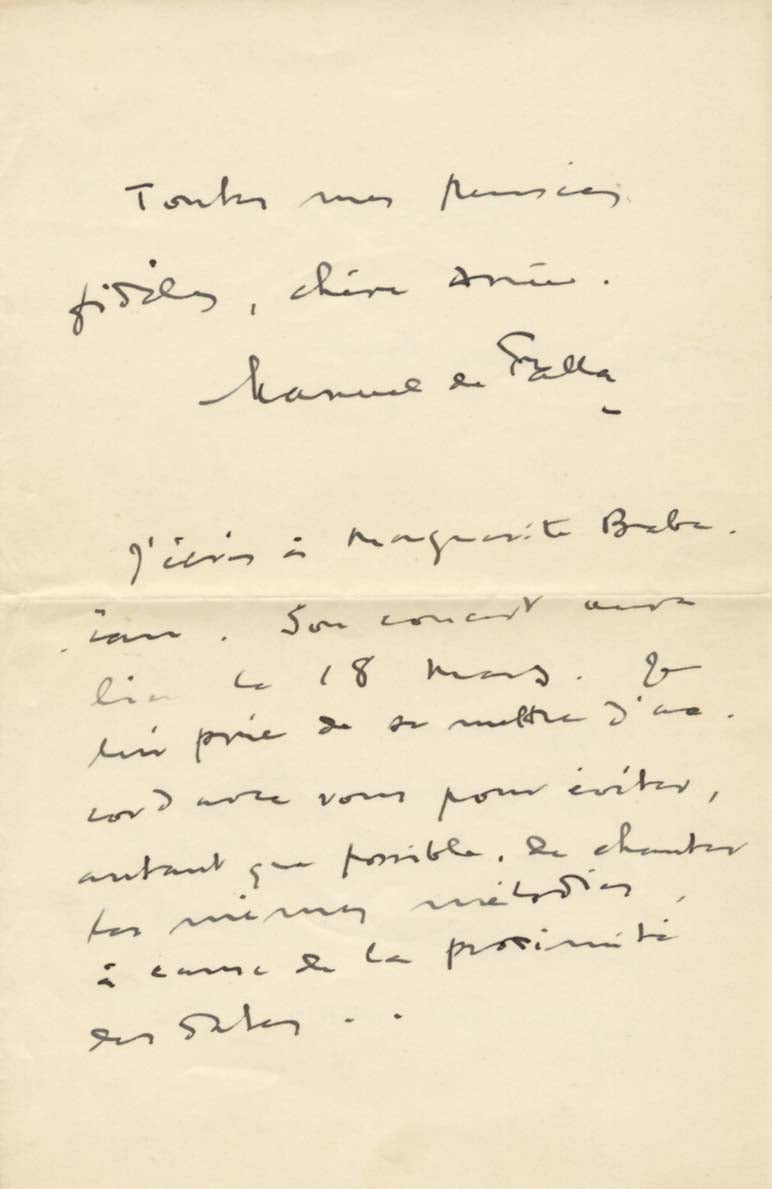 Toutes mes pensées
fidèles, chère Amie.
Manuel de Falla
J'écris à Marguerite Baba-
ïan. Son concert aura
lieu le 18 Mars. Je
lui prie de se mettre d'ac-
cord avec vous pour éviter,
autant que possible, de chanter
les mêmes mélodies,
à cause de la proximité
des dates...